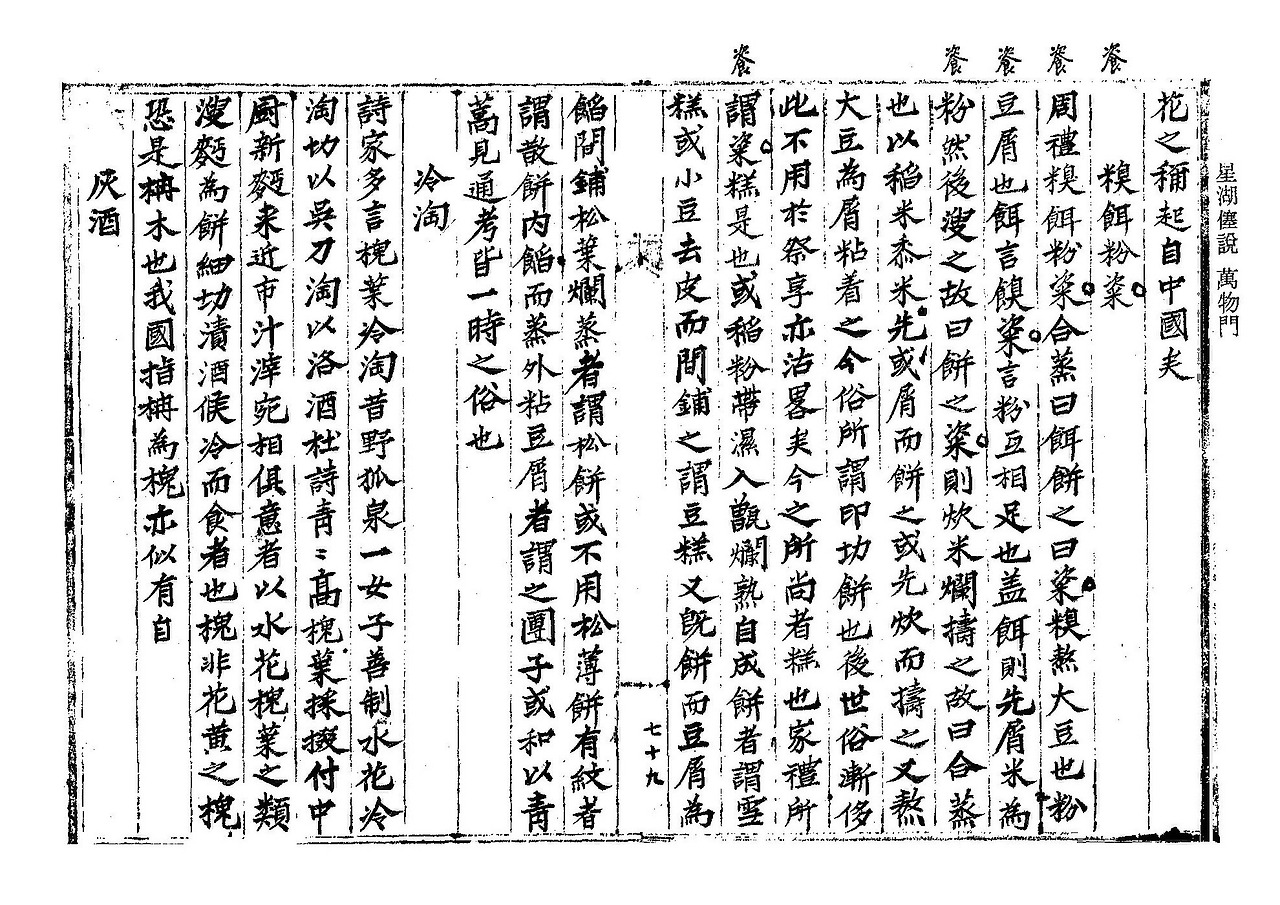 星湖僿說 萬物門
餈 餈 餈 餈 餈
花之稱起自中國矣
糗餌粉粢
周禮糗餌粉粢合蒸曰餌餅之曰粢糗熬大豆也粉
豆屑也餌言餽粢言粉互相足也盖餌則先屑米為
粉然後溲之故曰餅之粢則炊米爛擣之故曰合蒸
也以稻米黍米先或屑而餅之或先炊而擣之又熬
大豆為屑粘着之今俗所謂印切餅也後世俗漸侈
此不用於祭享亦沽畧矣今之所尚者糕也家禮所
謂粢糕是也或稻粉帶濕入甑爛熟自成餅者謂雪
糕或小豆去皮而間鋪之謂豆糕又旣餅而豆屑為
七十九
餡間鋪松葉爛蒸者謂松餅或不用松薄餅有紋者
謂散餅内餡而蒸外粘豆屑者謂之團子或和以青
蒿見通考皆一時之俗也
冷淘
詩家多言槐葉冷淘昔野狐泉一女子善制水花冷
淘切以吳刀淘以洛酒杜詩靑〻高槐葉採掇付中
厨新麪来近市汁滓宛相俱意者以水花槐葉之類
溲麪為餅細切漬酒候冷而食者也槐非花黄之槐
恐是栴木也我國指栴為槐亦似有自
灰酒